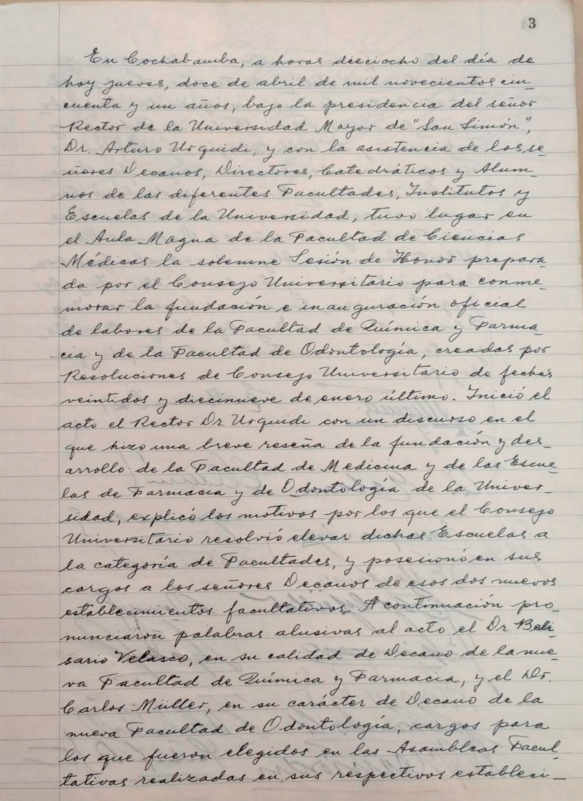 3
En Cochabamba, a horas dieciocho del día de
hoy jueves, doce de abril de mil novecientos cin-
cuenta y un años, bajo la presidencia del señor
Rector de la Universidad Mayor de "San Simón",
Dr. Arturo Urquidi, y con la asistencia de los se-
ñores Decanos, Directores, Catedráticos y Alum-
nos de las diferentes Facultades, Institutos y
Escuelas de la Universidad, tuvo lugar en
el Aula Magna de la Facultad de Ciencias
Médicas la solemne Sesión de Honor prepara-
da por el Consejo Universitario para conme-
morar la fundación e inauguración oficial
de labores de la Facultad de Química y Farma
cia y de la Facultad de Odontología, creadas por
Resoluciones de Consejo Universitario de fechas
veintidos y diecinueve de enero último. Inició el
acto el Rector Dr. Urquidi con un discurso en el
que hizo una breve reseña de la fundación y des-
arrollo de la Facultad de Medicina y de las Escue-
las de Farmacia y de Odontología de la Univer-
sidad, explicó los motivos por los que el Consejo
Universitario resolvió elevar dichas Escuelas a
la categoría de Facultades, y posesionó en sus
cargos a los señores Decanos de esos dos nuevos
establecimientos facultativos. A continuación pro-
nunciaron palabras alusivas al acto el Dr. Beli-
sario Velasco, en su calidad de Decano de la nue-
va Facultad de Química y Farmacia, y el Dr.
Carlos Müller, en su carácter de Decano de la
nueva Facultad de Odontología, cargos para
los que fueron elegidos en las Asambleas Facul-
tativas realizadas en sus respectivos estableci-